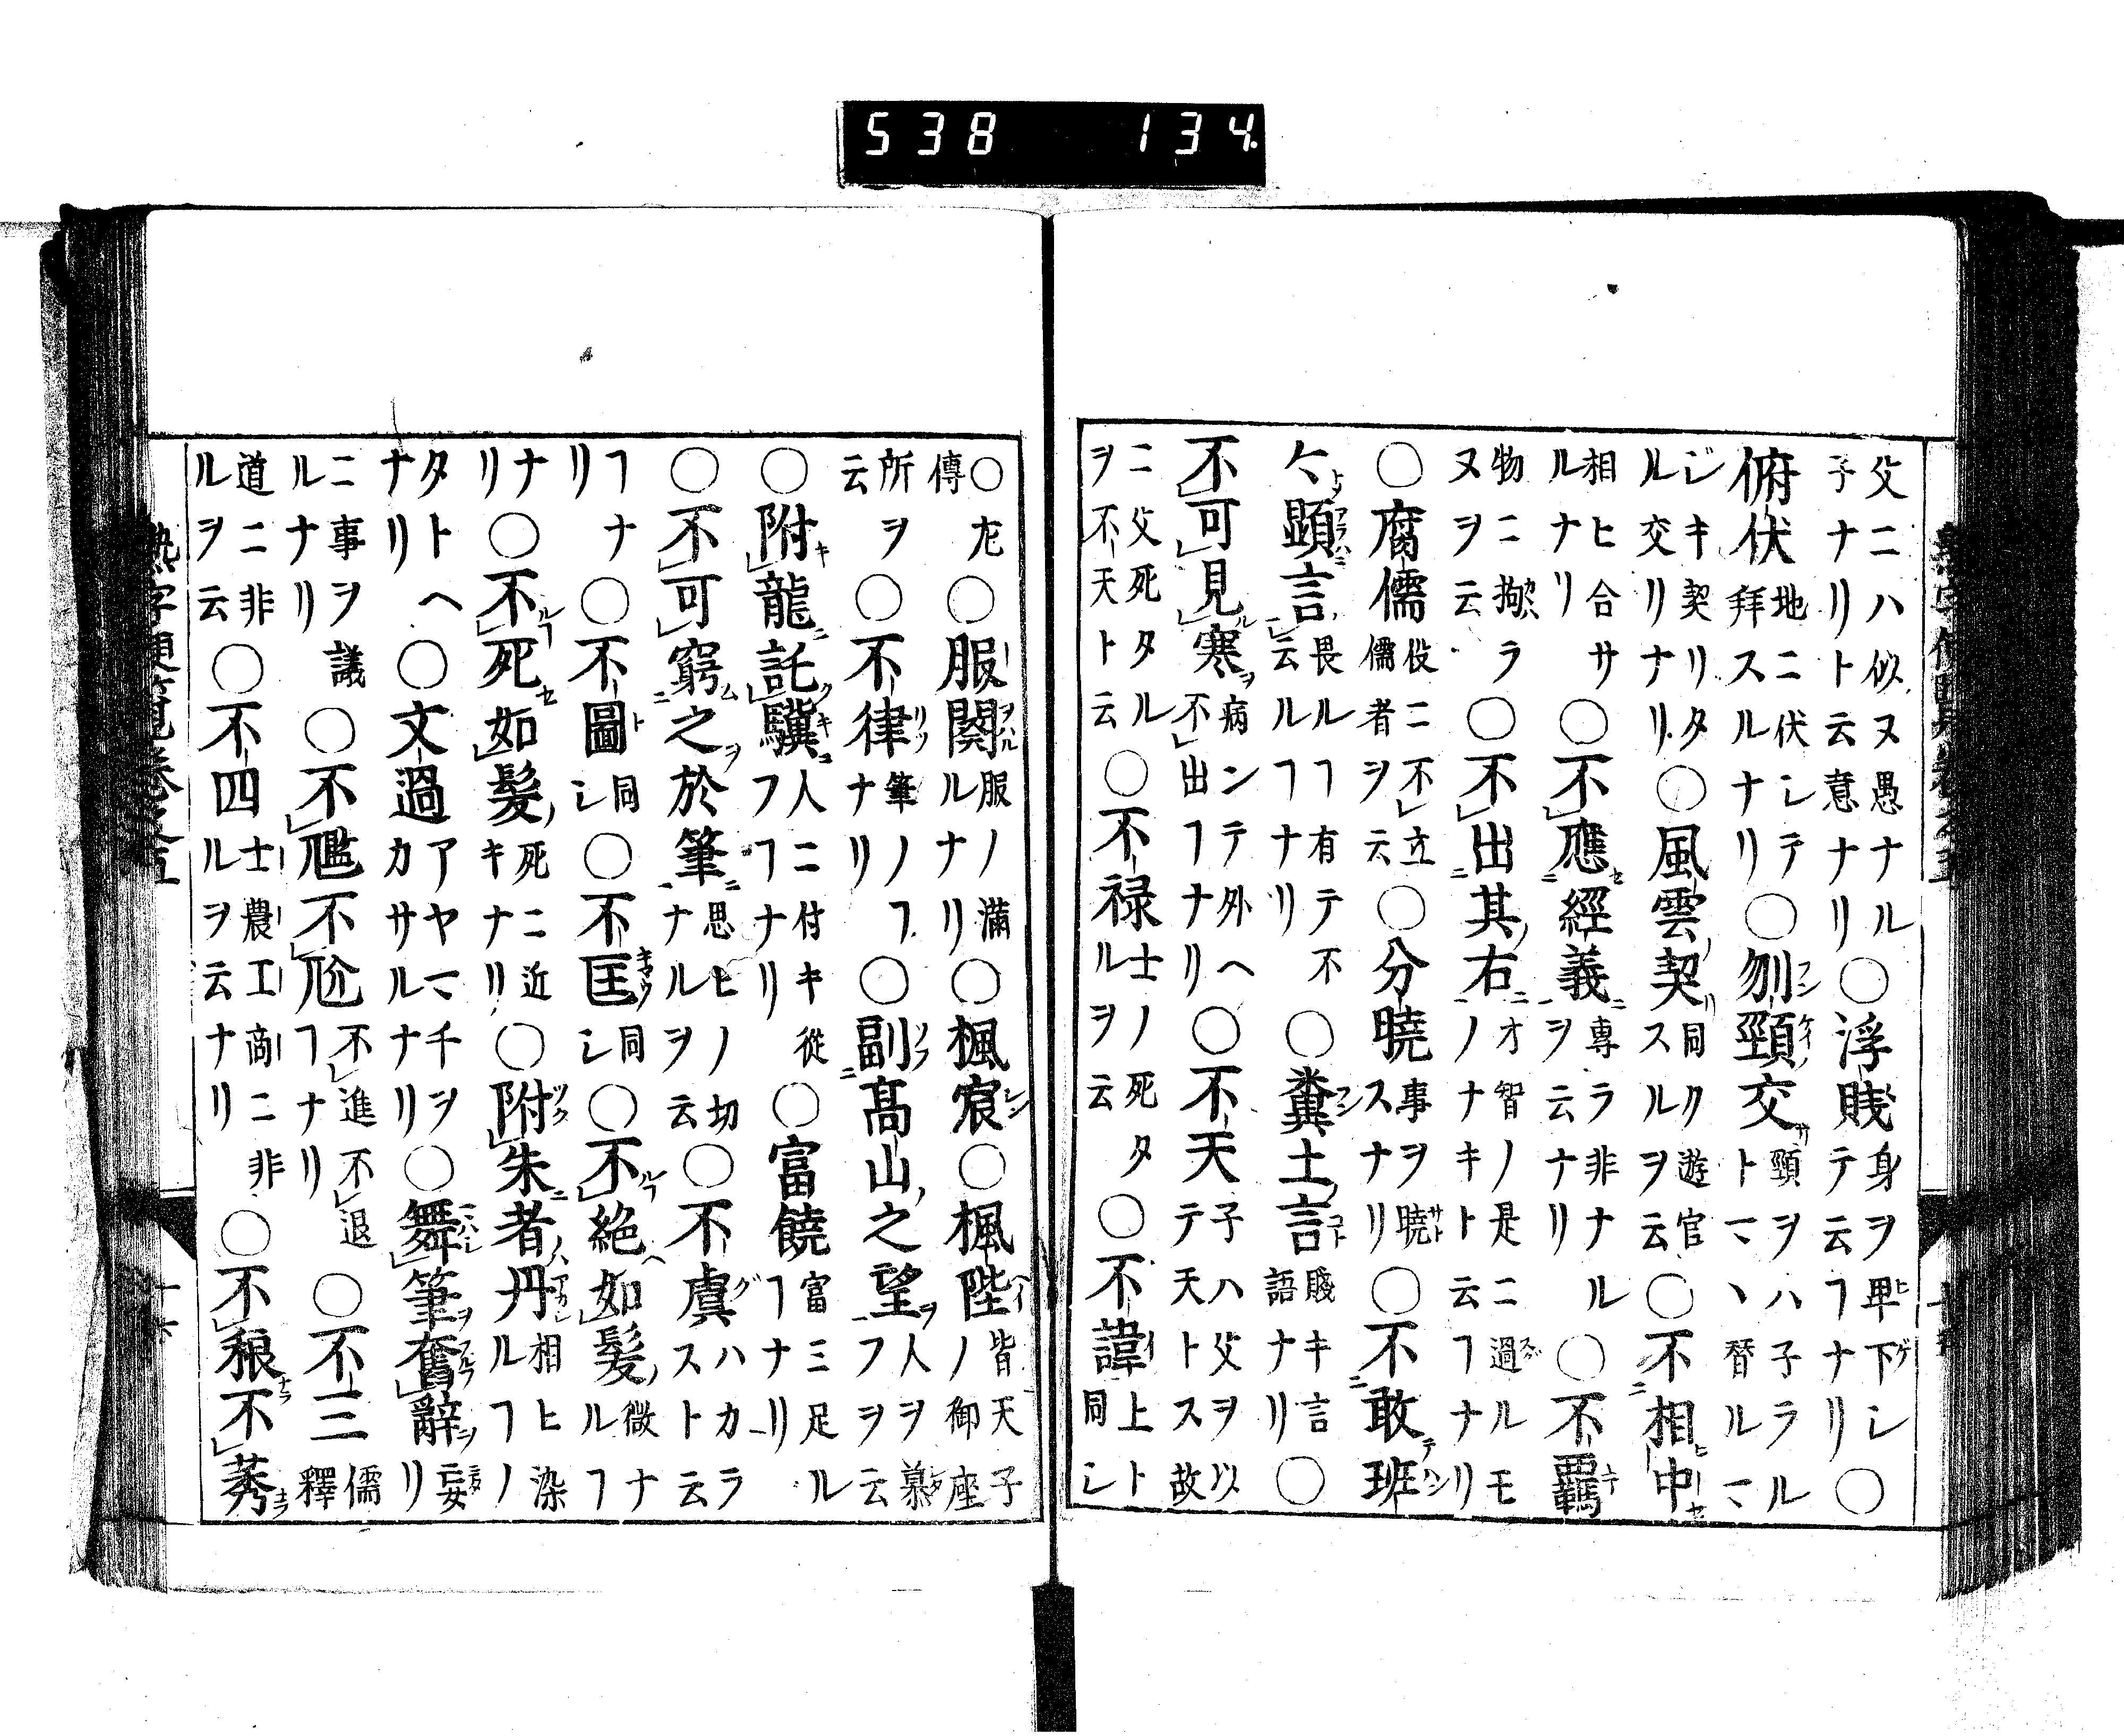 538 134.
父ニハ似ヌ愚ナル子ナリト云意ナリ○浮賤身ヲ卑下シテ云フナリ○
俯伏地ニ伏シテ拜スルナリ○刎頸交頸ヲハ子ラルトマヽ替ルマ
ジキ契リタル交リナリ○風雲契同ク遊官スルヲ云○不相中
相ヒ合サルナリ○不應經義專ラ非ナルヲ云ナリ○不羈
物ニ拘ラヌヲ云○不出其右才智ノ是ニ過ルモノナキト云フナリ
○腐儒役ニ不立儒者ヲ云○分曉事ヲ曉スナリ○不敢班
々顕言畏ルフ有テ不云ルフナリ○糞土言賤キ言語ナリ○
不可見寒病ンテ外ヘ不出フナリ○不天子ハ父ヲ以テ天トス故
ニ父死タルヲ不天ト云○不禄士ノ死タルヲ云○不諱上ト同シ
○左傳○服闋服ノ滿ルナリ○楓宸○楓陛皆天子ノ御座
所ヲ云○不律筆ノフナリ○副髙山之望人ヲ慕フヲ云
○附龍託驥人ニ付キ從フフナリ○富饒富ミ足ルフナリ
○不可窮之於筆思ヒノ切ナルヲ云○不虞ハカラストカ云
フナリ○不圖同シ○不匡同シ○不絶如髮微ナルフ
ナリ○不死如髮死ニ近キナリ○附朱者丹相ヒ染ルフノ
タトヘナリ○文過アヤマチヲカサルナリ○舞筆奮辭妄リ
ニ事ヲ議ルナリ○不尶不尬不進不退フナリ○不三儒釋
道ニ非ルヲ云○不四士農工商ニ非ルヲ云ナリ○不稂不莠
熟字便覧巻之五